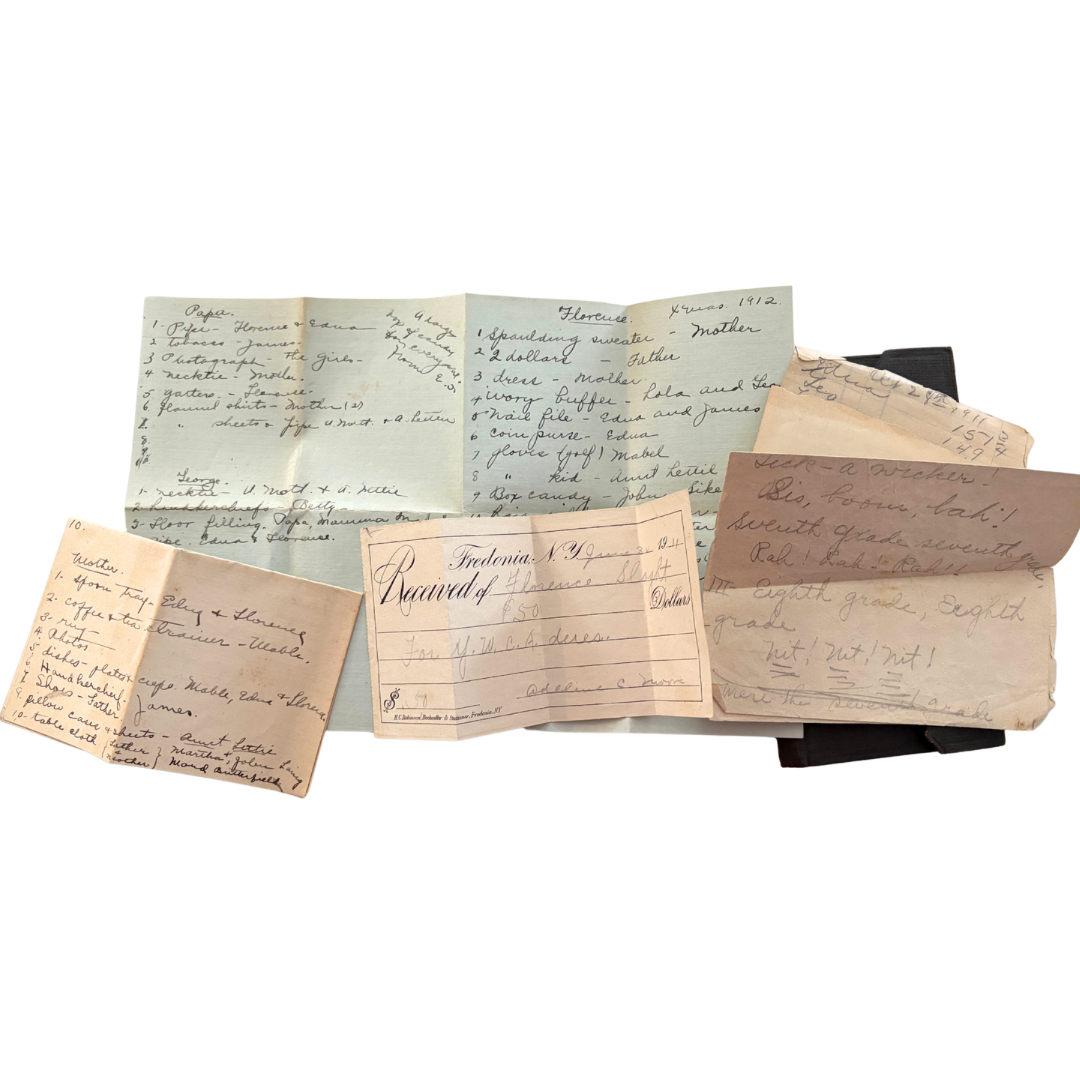 Papa.
1- Pipe - Florence & Edna
2 tobacco - James -
3 Photograph - the girls -
4 necktie - Mother.
5 garters - Florence -
6 flannel shirts - Mother (2)
7 " sheets &
8
9
10
George
box of candy
for everyone
from
George.
1- necktie -
2 handkerchiefs - Betty -
3- Floor filling. Papa, Mamma
Pipe. Edna & Florence.
Florence. Xmas. 1912.
1 Spaulding sweater - Mother
2 2 dollars - Father
3 dress - Mother
4 ivory buffer - Lola and
5 Nail file - Edna and James
6 coin purse - Edna
7 gloves (golf) Mabel
8 " kid - Aunt Lettie
9 Box candy - John
10.
Mother.
1. Spoon tray - Edna & Florence
2. coffee & tea strainer - Mable.
3-
4 Photos
5 dishes - plates & Mable, Edna & Florence
6 Handkerchief, James.
7 Shoes - Father
8. pillow cases & sheets - Aunt Lettie
10- table cloth Father Martha & John
Mother Maud Butterfield
Fredonia, N.Y. June 191
Received of Florence
$.50 Dollars
For Y. W. C. A. dues.
$ .50 Adeline C. Moore
Edna 1911
Leo 151
149
- a wicker -
Sis, boom, bah!
Seventh grade seventh
Rah! Rah! Rah!!
III- Eighth grade, Eighth
grade
Nit! Nit! Nit!
the seventh grade